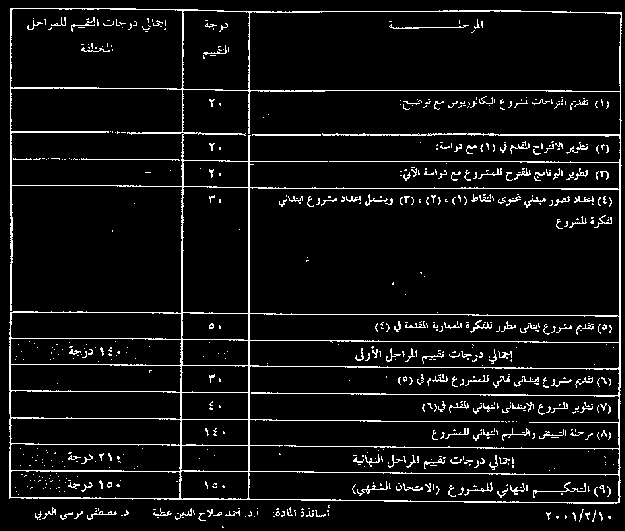 المرحلــــــــــــــــة درجة التقييم إجمالي درجات التقييم للمراحل المختلفة
(١) تقديم اقتراحات لمشروع البكالوريوس مع توضيح: ٢٠
(٢) تطوير الاقتراح المقدم في (١) مع دراسة: ٢٠
(٣) تطوير البرنامج المقترح للمشروع مع دراسة الآتي: ٢٠
(٤) إعداد تصور مبدئي لمحتوى النقاط (١) ، (٢) ، (٣) ويشمل إعداد مشروع ابتدائي ٣٠
لفكرة المشروع
(٥) تقديم مشروع ابتدائي مطور للفكرة المعمارية المقدمة في (٤) ٥٠
إجمالي درجات تقييم المراحل الأولى ١٤٠ درجة
(٦) تقديم مشروع إبتدائي نهائي للمشروع المقدم في (٥) ٣٠
(٧) تطوير المشروع الإبتدائي النهائي المقدم في(٦) ٤٠
(٨) مرحلة التبييض والتسليم النهائي للمشروع ١٤٠
إجمالي درجات تقييم المراحل النهائية ٢١٠ درجة
(٩) التحكيــم النهائي للمشروع (الامتحان الشفهي) ١٥٠ ١٥٠ درجة
٢٠٠١/٢/١٠ أساتذة المادة: أ.د. أحمد صلاح الدين عطية د. مصطفى مرسي العربي